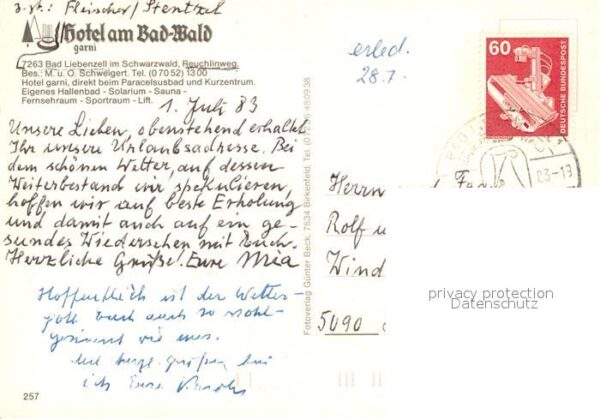 z. Zt.: Fleischer/Stentzel
Hotel am Bad-Wald
garni
7263 Bad Liebenzell im Schwarzwald, Reuchlinweg.
Bes.: M. u. O. Schweigert. Tel. (0 70 52) 13 00
Hotel garni, direkt beim Paracelsusbad und Kurzentrum.
Eigenes Hallenbad - Solarium - Sauna -
Fernsehraum - Sportraum - Lift.
1. July 83
Unsere Lieben, obenstehend erhaltet
Ihr unsere Urlaubsadresse. Bei
dem schönen Wetter, auf dessen
Weiterbestand wir spekulieren,
hoffen wir auf beste Erholung
und damit auch auf ein ge-
sundes Wiedersehen mit Euch.
Herzliche Grüße! Eure Mia
Hoffentlich ist der Wetter-
gott Euch auch so wohl-
gesinnt wie uns.
Mit herzl. Grüßen bin
ich Euer
257
Fotoverlag Günter Beck, 7534 Birkenfeld, Tel.
erled.
28.7.
60
DEUTSCHE BUNDESPOST
83-19
Herrn
Rolf u
Wind
5090
privacy protection
Datenschutz